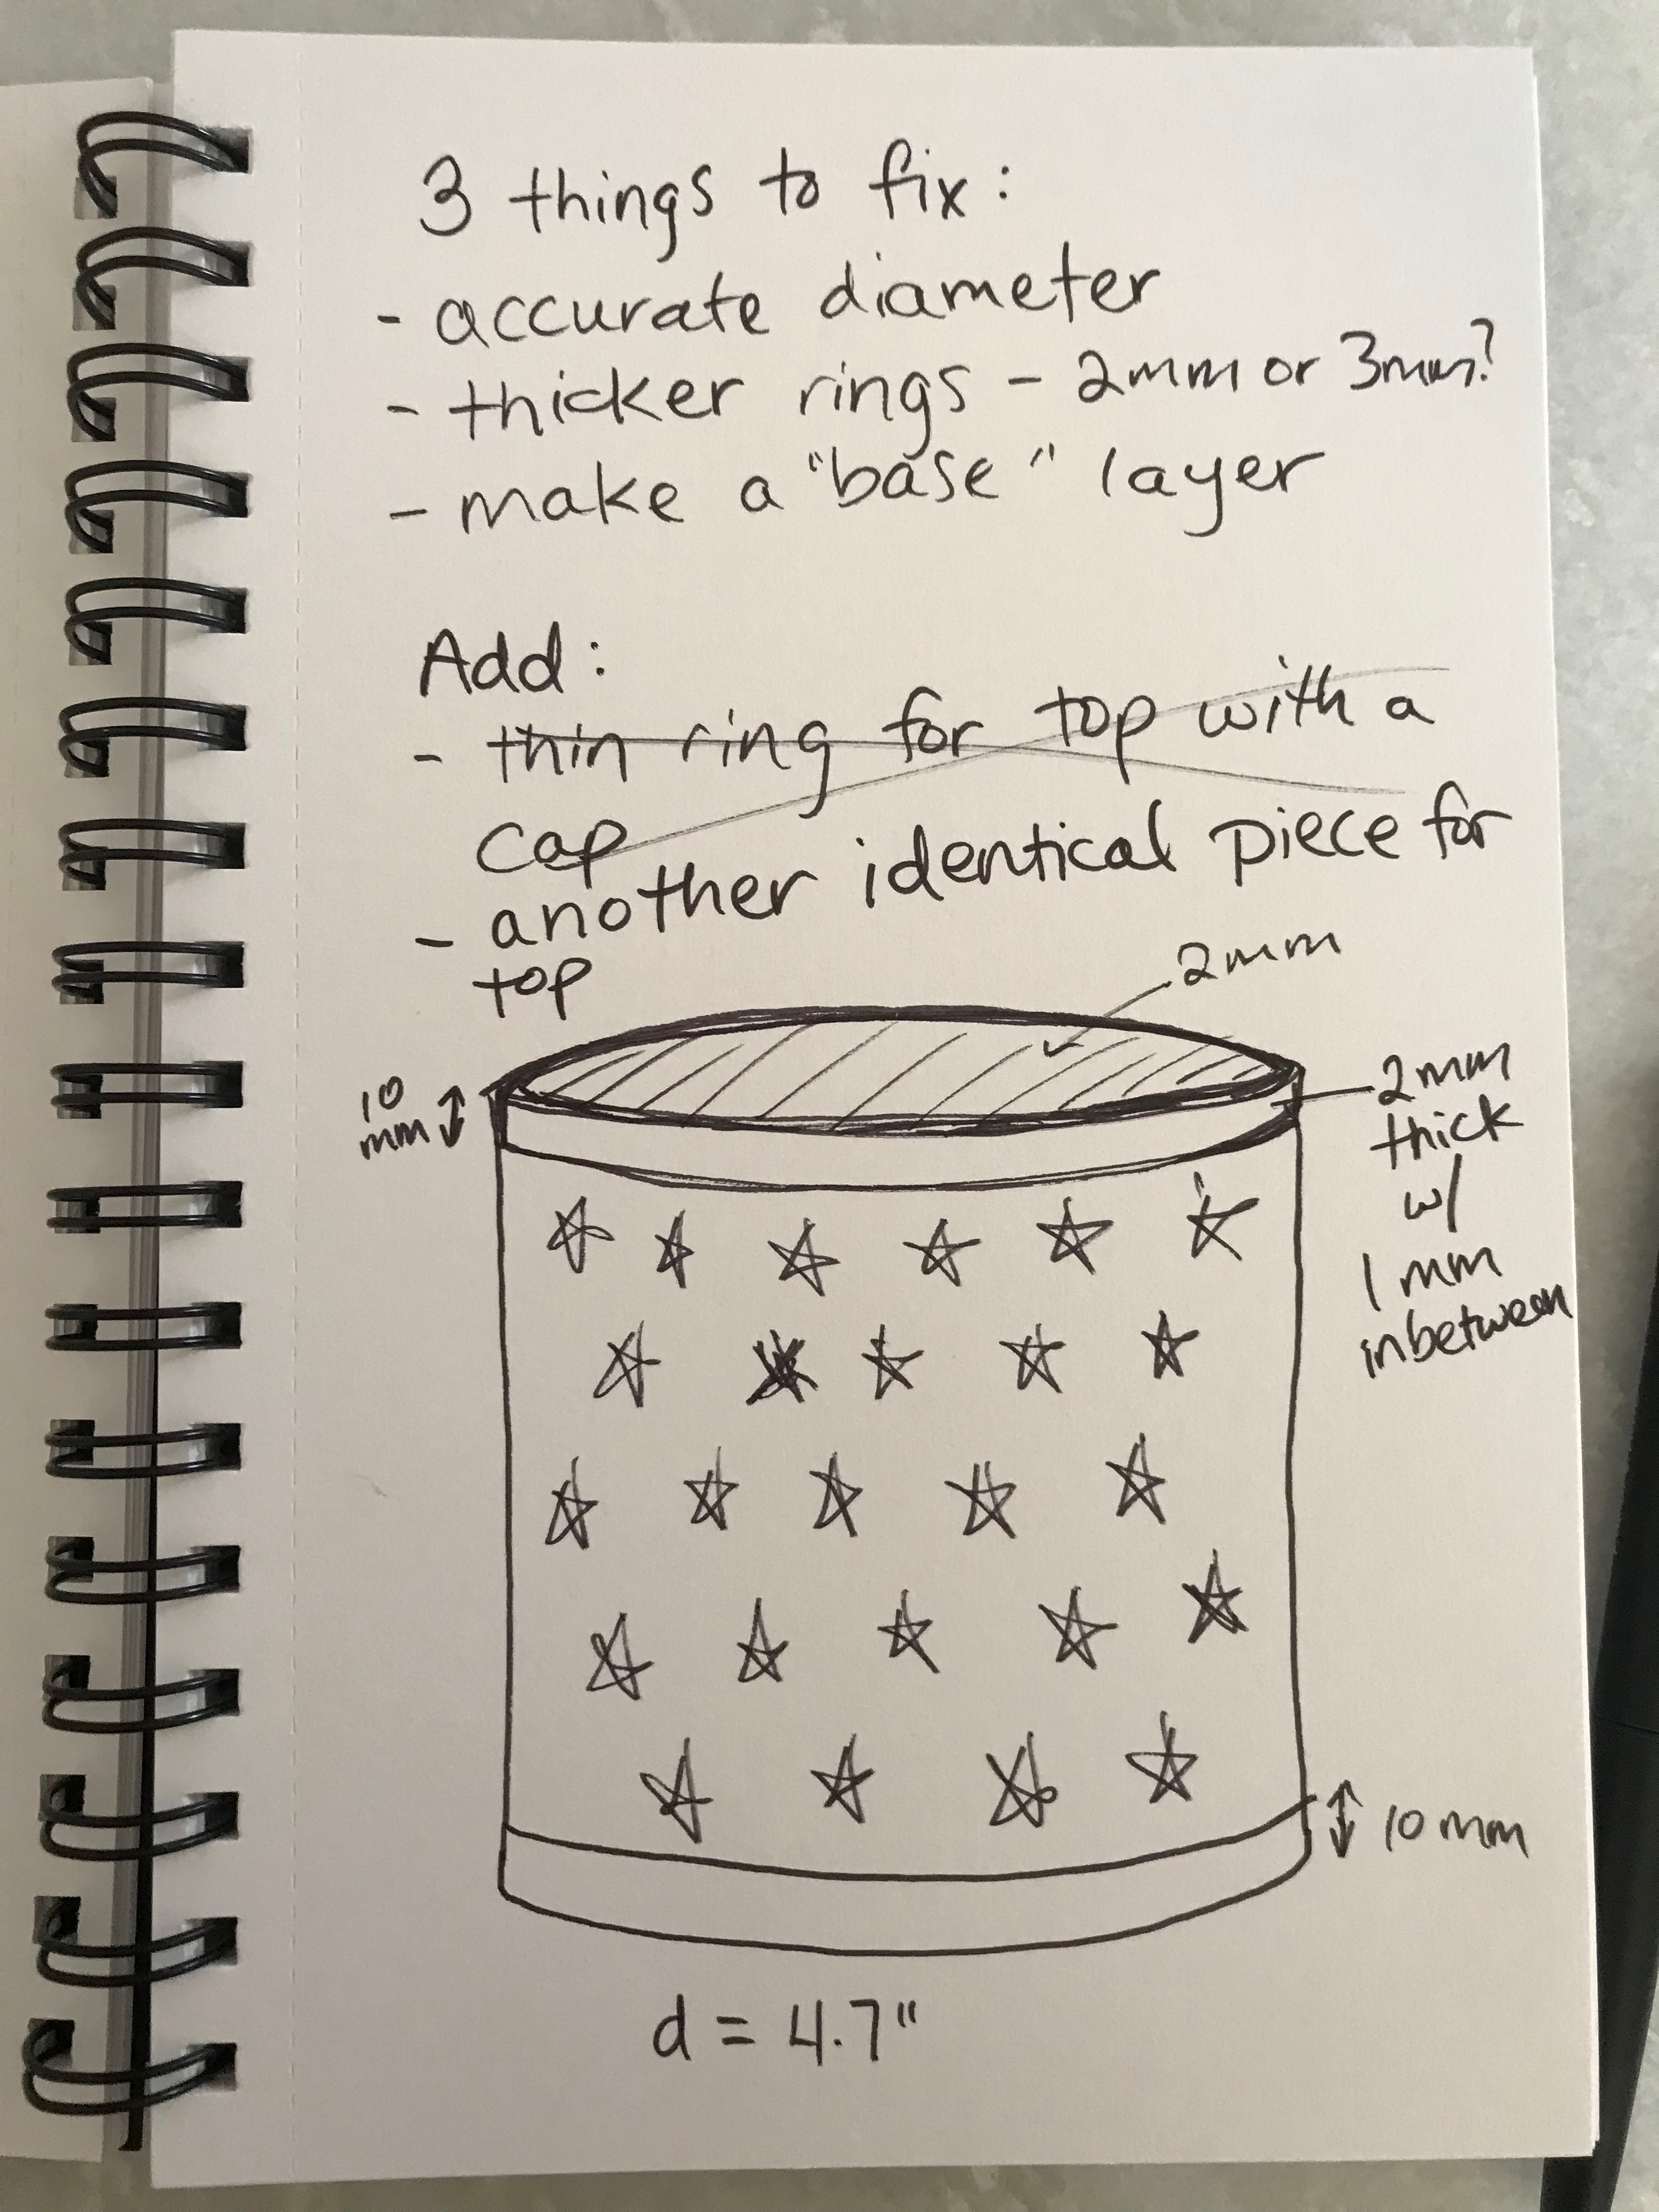 3 things to fix:
- accurate diameter
- thicker rings - 2mm or 3mm?
- make a "base" layer
Add:
- thin ring for top with a
cap
- another identical piece for
top
2mm
10
mm
2mm
thick
w/
1 mm
inbetween
10 mm
d = 4.7"